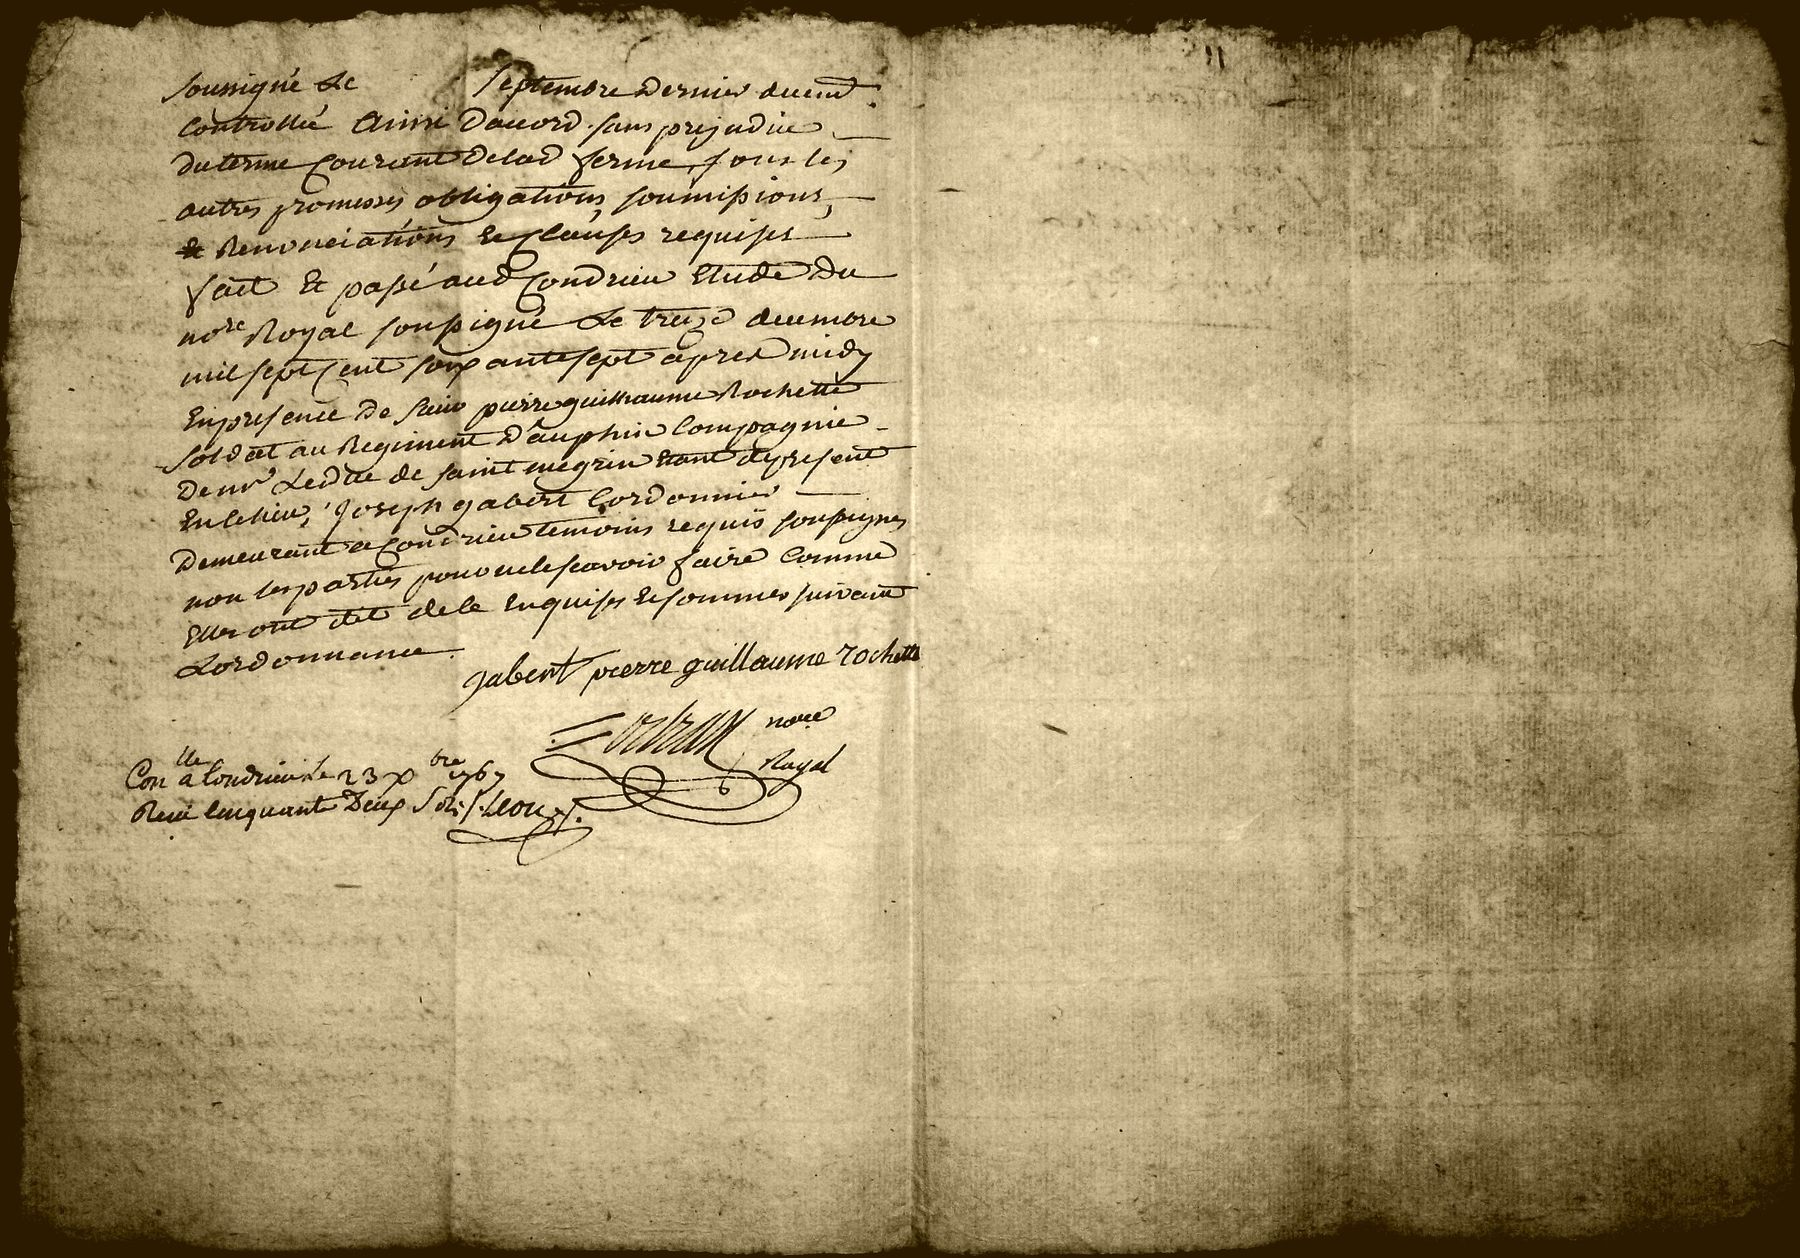 soussigné Le septembre dernier duemt
controllé Ainsi Daccord sans prejudice
du terme Courant delad ferme, sous les
autres promesses obligations, soumissions,
& Renonciations & Clauses requises
fait Et passé aud Condrieu Etude du
nore Royal soussigné Le treze decembre
mil sept Cent soixante sept apres midy
En presence de sieur pierre guillaume Rochette
soldat au Regiment Dauphin Compagnie
De mr Le duc de saint megrin Etant de present
En ce lieu, Joseph gabert Cordonnier
Demeurant a Condrieu temoins requis soussignes
non les parties pour ne le scavoir faire Comme
Elles ont dit de ce Enquises & sommes suivant
Lordonnance
gabert pierre guillaume rochette
nore
Royal
Conlle a Condrieu le 23 Xbre 1767
Recu Cinquante Deux sols